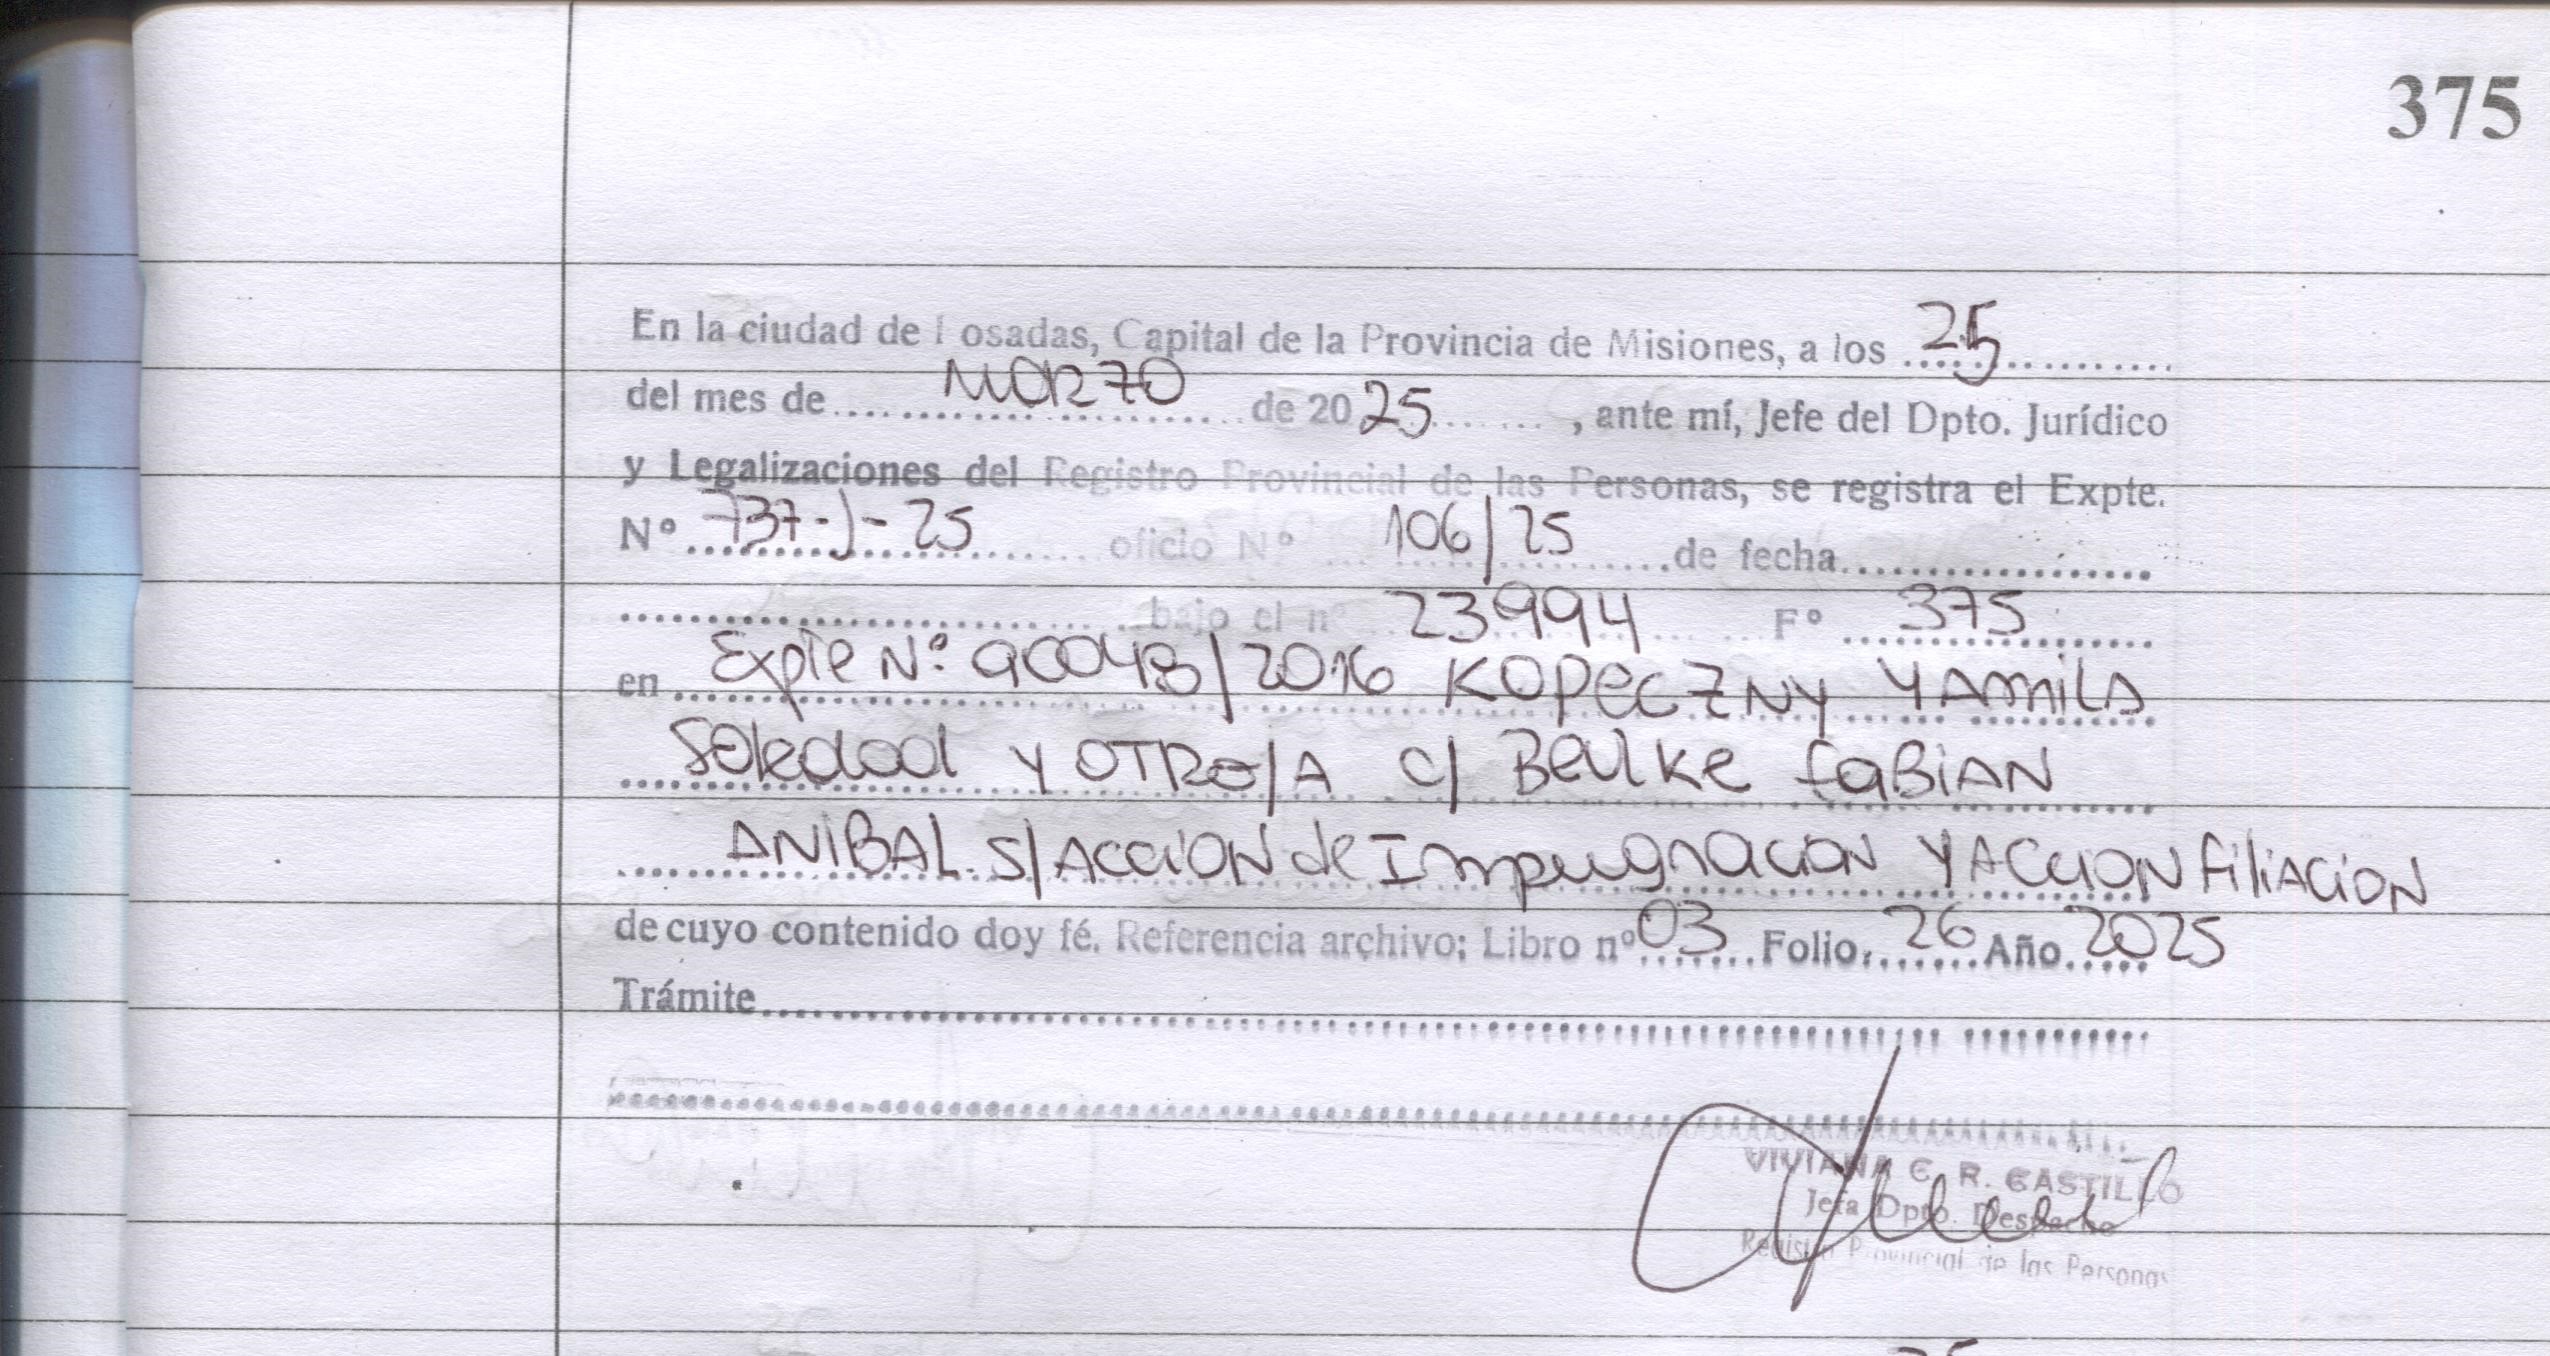 375
En la ciudad de Posadas, Capital de la Provincia de Misiones, a los 25
del mes de MARZO de 2025, ante mí, Jefe del Dpto. Jurídico
y Legalizaciones del Registro Provincial de las Personas, se registra el Expte.
Nº 737-J-25 oficio Nº 106/25 de fecha
bajo el nº 23994 Fº 375
en Expte Nº: 90048/2016 KOPECZNY YAMILA
Soledad Y OTRO/A C/ BEULKE FABIAN
ANIBAL. S/ ACCION de Impugnacion Y ACCION filiACION
de cuyo contenido doy fé. Referencia archivo: Libro nº 03 Folio. 26 Año 2025
Trámite
VIVIANA E. R. CASTILLO
Jefa Dpto. Despacho
Registro Provincial de las Personas